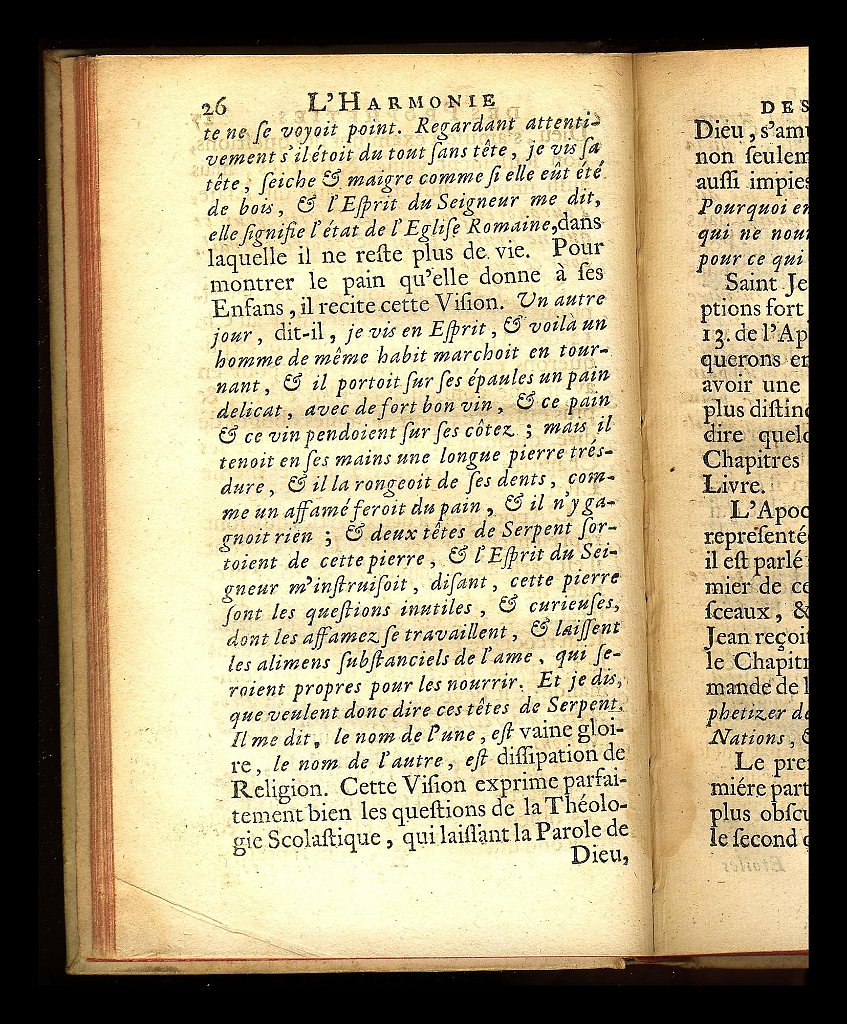 26 L'HARMONIE
te ne ſe voyoit point. Regardant attenti-
vement s'il étoit du tout ſans tête, je vis ſa
tête, ſeiche & maigre comme ſi elle eût été
de bois, & l'Eſprit du Seigneur me dit,
elle ſignifie l'état de l'Egliſe Romaine, dans
laquelle il ne reſte plus de vie. Pour
montrer le pain qu'elle donne à ſes
Enfans, il recite cette Viſion. Un autre
jour, dit-il, je vis en Eſprit, & voilà un
homme de même habit marchoit en tour-
nant, & il portoit ſur ſes épaules un pain
delicat, avec de fort bon vin, & ce pain
& ce vin pendoient ſur ſes côtez ; mais il
tenoit en ſes mains une longue pierre trés-
dure, & il la rongeoit de ſes dents, com-
me un affamé feroit du pain, & il n'y ga-
gnoit rien ; & deux têtes de Serpent ſor-
toient de cette pierre, & l'Eſprit du Sei-
gneur m'inſtruiſoit, diſant, cette pierre
ſont les queſtions inutiles, & curieuſes,
dont les affamez ſe travaillent, & laiſſent
les alimens ſubſtanciels de l'ame, qui ſe-
roient propres pour les nourrir. Et je dis,
que veulent donc dire ces têtes de Serpent.
Il me dit, le nom de l'une, eſt vaine gloi-
re, le nom de l'autre, eſt diſſipation de
Religion. Cette Viſion exprime parfai-
tement bien les queſtions de la Théolo-
gie Scolaſtique, qui laiſſant la Parole de
Dieu,
DES
Dieu, s'am
non ſeulem
auſſi impies
Pourquoi en
qui ne nour
pour ce qui
Saint Je
ptions fort
13. de l'Ap
querons en
avoir une
plus diſtin
dire quelq
Chapitres
Livre.
L'Apoc
repreſenté
il eſt parlé
mier de ce
ſceaux, &
Jean reçoit
le Chapitr
mande de l
phetizer de
Nations, &
Le pre
miére part
plus obſcu
le ſecond